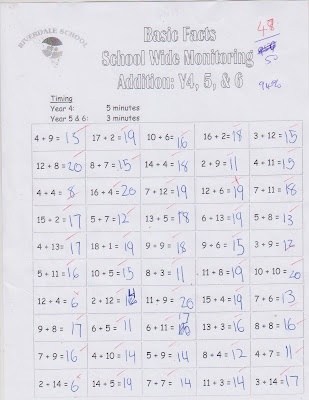 RIVERDALE SCHOOL
Basic Facts
School Wide Monitoring
Addition: Y4, 5, & 6
48
50
94%
Timing
Year 4: 5 minutes
Year 5 & 6: 3 minutes
4 + 9 = 13 17 + 2 = 19 10 + 6 = 16 16 + 2 = 18 3 + 12 = 15
12 + 8 = 20 8 + 7 = 15 14 + 4 = 18 2 + 9 = 11 4 + 11 = 15
4 + 4 = 8 16 + 4 = 20 7 + 12 = 19 12 + 6 = 19 7 + 11 = 18
15 + 2 = 17 5 + 7 = 12 13 + 5 = 18 6 + 13 = 19 5 + 8 = 13
4 + 13 = 17 18 + 1 = 19 9 + 9 = 18 9 + 6 = 15 3 + 9 = 12
5 + 11 = 16 10 + 5 = 15 8 + 3 = 11 11 + 8 = 19 10 + 10 = 20
12 + 4 = 6 2 + 12 = 14 11 + 9 = 20 15 + 4 = 19 7 + 6 = 13
9 + 8 = 17 6 + 5 = 11 6 + 11 = 17 13 + 3 = 16 8 + 8 = 16
7 + 9 = 16 4 + 10 = 14 5 + 9 = 14 8 + 4 = 12 4 + 7 = 11
2 + 14 = 6 14 + 5 = 19 7 + 7 = 14 11 + 3 = 14 3 + 14 = 17